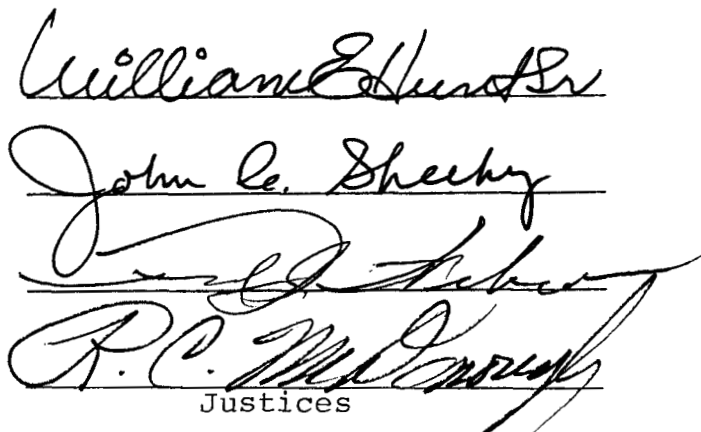 William E Hunt Sr
John C. Sheehy
R. C. McDonough
Justices